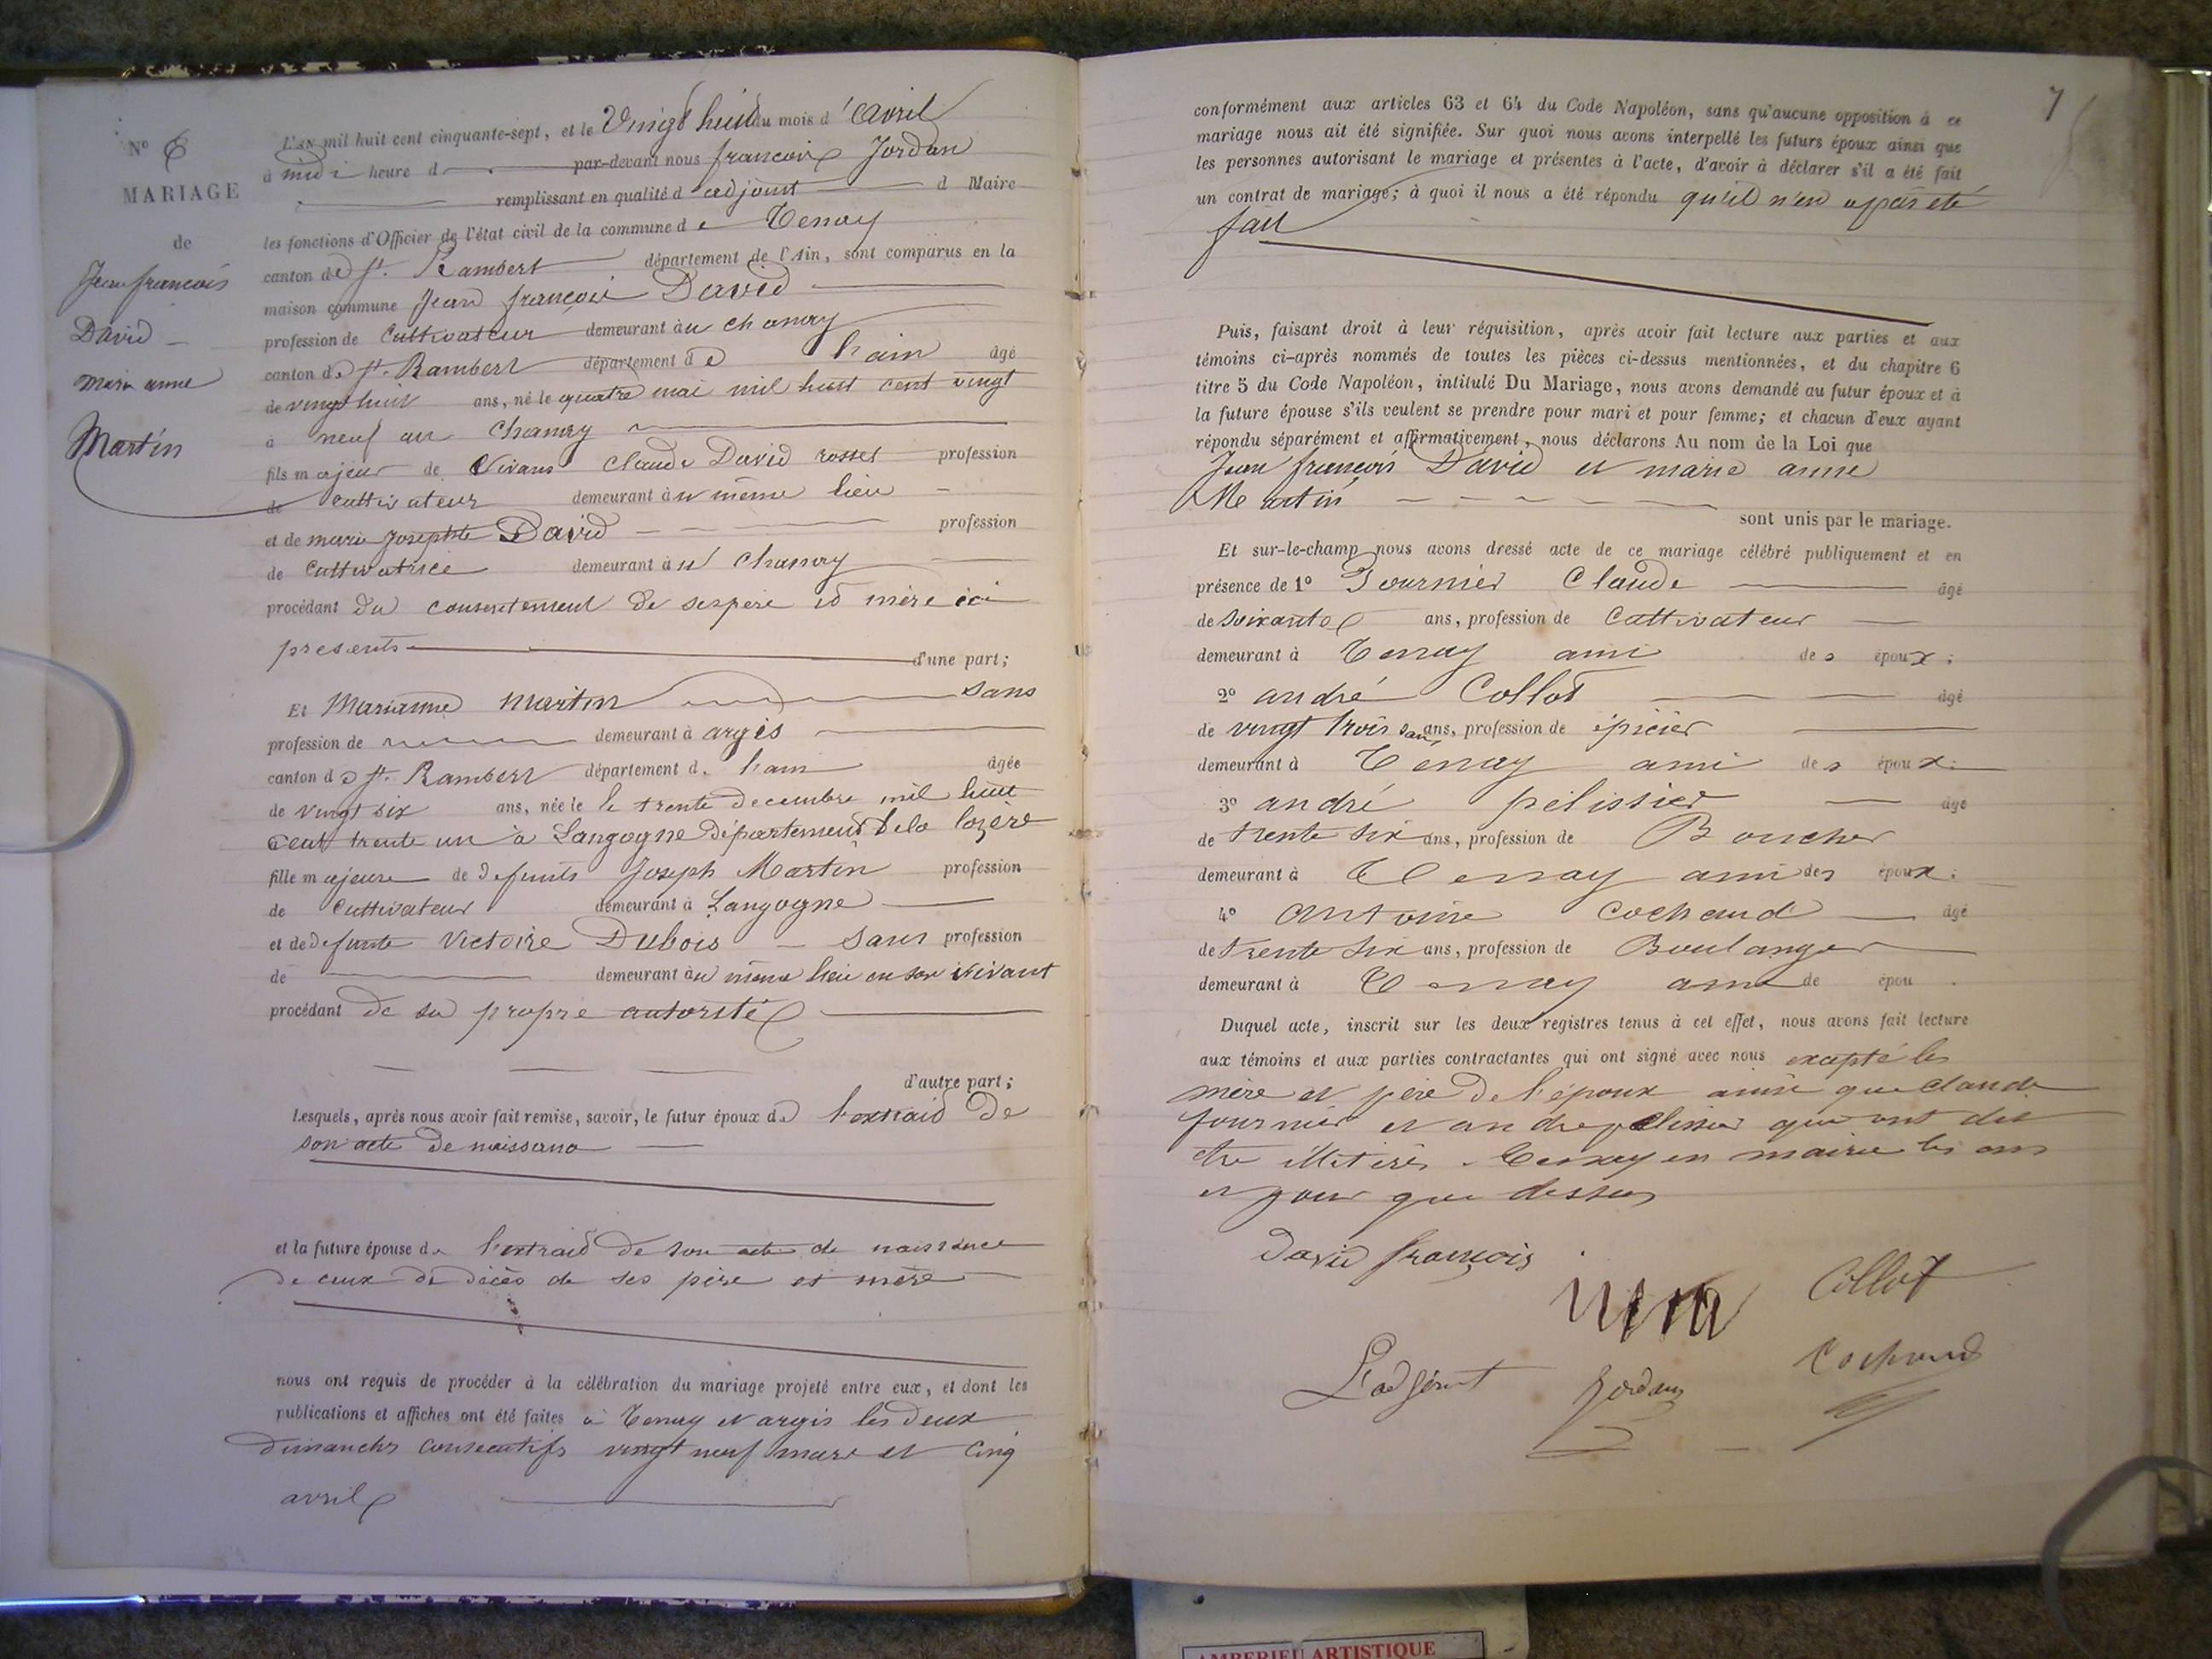 N° 6
MARIAGE
de
Jean françois
David
marie anne
Martin
L'AN mil huit cent cinquante-sept, et le Vingt huit du mois d'avril
à midi heure d par-devant nous francois Jordan
remplissant en qualité d'adjoint d Maire
les fonctions d'Officier de l'état civil de la commune de Tenay
canton de St. Rambert département de l'Ain, sont comparus en la
maison commune Jean françois David
profession de Cultivateur demeurant au Chanay
canton de St. Rambert département de l'ain âgé
de vingt huit ans, né le quatre mai mil huit cent vingt
à neuf au Chanay
fils majeur de Vivant Claude David rosset profession
de Cultivateur demeurant au même lieu
et de marie Josephte David profession
de Cultivatrice demeurant au Chanay
procédant du consentement de ses père et mère ici
presents d'une part;
Et Marianne Martin sans
profession de demeurant à argis
canton de St. Rambert département d. l'ain âgée
de vingt six ans, née le le trente decembre mil huit
cent trente un à Langogne département de la lozère
fille majeure de defunts Joseph Martin profession
de Cultivateur demeurant à Langogne
et de defunte Victoire Dubois sans profession
de demeurant au même lieu en son vivant
procédant de sa propre autorité
d'autre part;
Lesquels, après nous avoir fait remise, savoir, le futur époux de l'extrait de
son acte de naissance
et la future épouse de l'extrait de son acte de naissance
de ceux de décès de ses père et mère
nous ont requis de procéder à la célébration du mariage projeté entre eux, et dont les
publications et affiches ont été faites à Tenay et argis les deux
dimanches consecutifs vingt neuf mars et cinq
avril
7
conformément aux articles 63 et 64 du Code Napoléon, sans qu'aucune opposition à ce
mariage nous ait été signifiée. Sur quoi nous avons interpellé les futurs époux ainsi que
les personnes autorisant le mariage et présentes à l'acte, d'avoir à déclarer s'il a été fait
un contrat de mariage; à quoi il nous a été répondu qu'il n'en a pas été
fait
Puis, faisant droit à leur réquisition, après avoir fait lecture aux parties et aux
témoins ci-après nommés de toutes les pièces ci-dessus mentionnées, et du chapitre 6
titre 5 du Code Napoléon, intitulé Du Mariage, nous avons demandé au futur époux et à
la future épouse s'ils veulent se prendre pour mari et pour femme; et chacun d'eux ayant
répondu séparément et affirmativement, nous déclarons Au nom de la Loi que
Jean françois David et marie anne
Martin
sont unis par le mariage.
Et sur-le-champ nous avons dressé acte de ce mariage célébré publiquement et en
présence de 1° Fournier Claude âgé
de soixante ans, profession de Cultivateur
demeurant à Tenay ami des époux;
2° andré Collot âgé
de vingt trois ans, profession de épicier
demeurant à Tenay ami des époux;
3° andré pelissier âgé
de trente six ans, profession de Boucher
demeurant à Tenay ami des époux;
4° Antoine Cochaud âgé
de trente six ans, profession de Boulanger
demeurant à Tenay ami de épou .
Duquel acte, inscrit sur les deux registres tenus à cet effet, nous avons fait lecture
aux témoins et aux parties contractantes qui ont signé avec nous excepté les
mère et père de l'époux ainsi que claude
fournier et andre pelissier qui ont dit
être illitérés. Tenay en mairie les ans
et jour que dessus
David françois
Collot
Cochaud
L'adjoint Jordan
AMBERIEU ARTISTIQUE